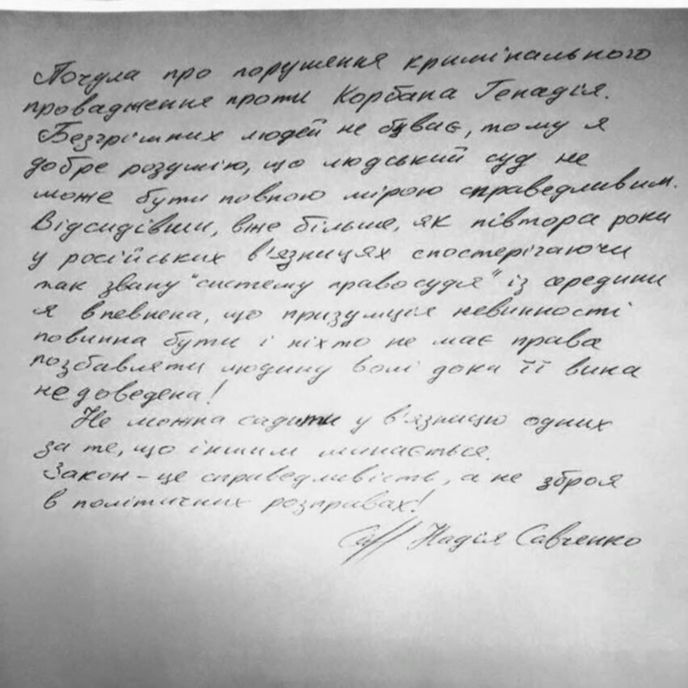 Почула про порушення кримінального
провадження проти Корбана Генадія.
Безгрішних людей не буває, тому я
добре розумію, що людський суд не
може бути повною мірою справедливим.
Відсидівши, вже більше, як півтора роки
у російських в'язницях спостерігаючи
так звану "систему правосуддя" із середини
я впевнена, що призумпція невинності
повинна бути і ніхто не має права
позбавляти людину волі доки її вина
не доведена!
Не можна садити у в'язницю одних
за те, що іншим минається.
Закон - це справедливість, а не зброя
в політичних розправах!
Надія Савченко